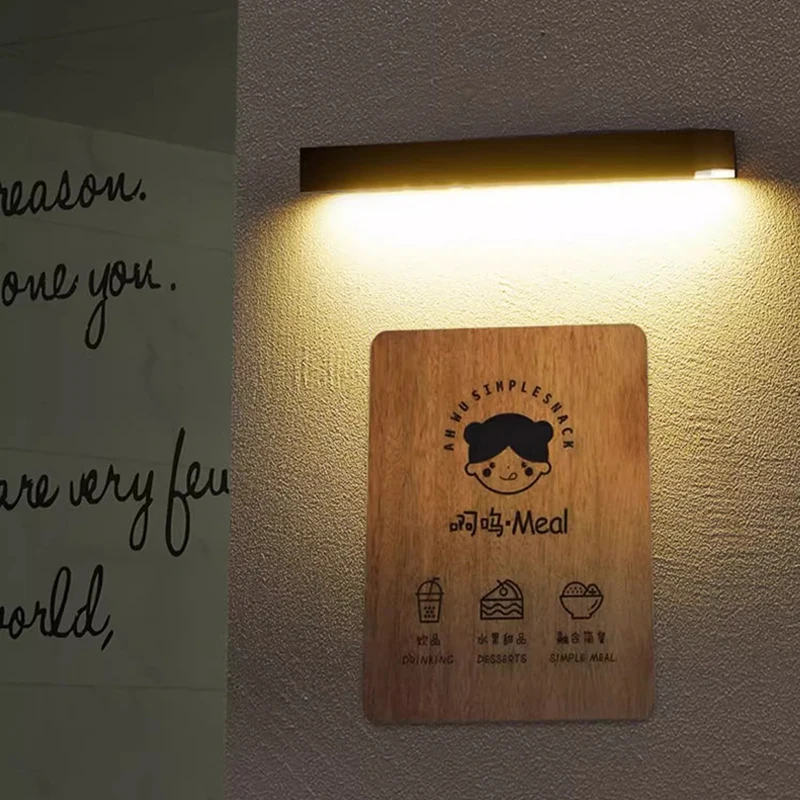 reason.
one you.
are very few
world,
AH WU SIMPLESNACK
啊呜·Meal
饮品
水果甜品
融合简餐
DRINKING
DESSERTS
SIMPLE MEAL